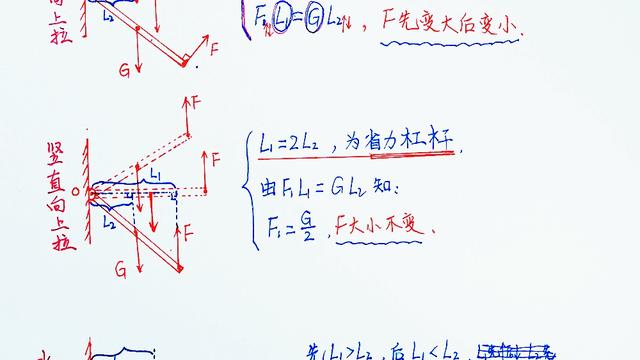 向上拉
L₂
G
F
F₂L₁=GL₂, F先变大后变小.
竖直向上拉
F
F
F
O
L₁
L₂
G
L₁=2L₂, 为省力杠杆.
由F₁L₁=GL₂知:
F₁=G/2, F大小不变.
先L₁>L₂, 后L₁<L₂,